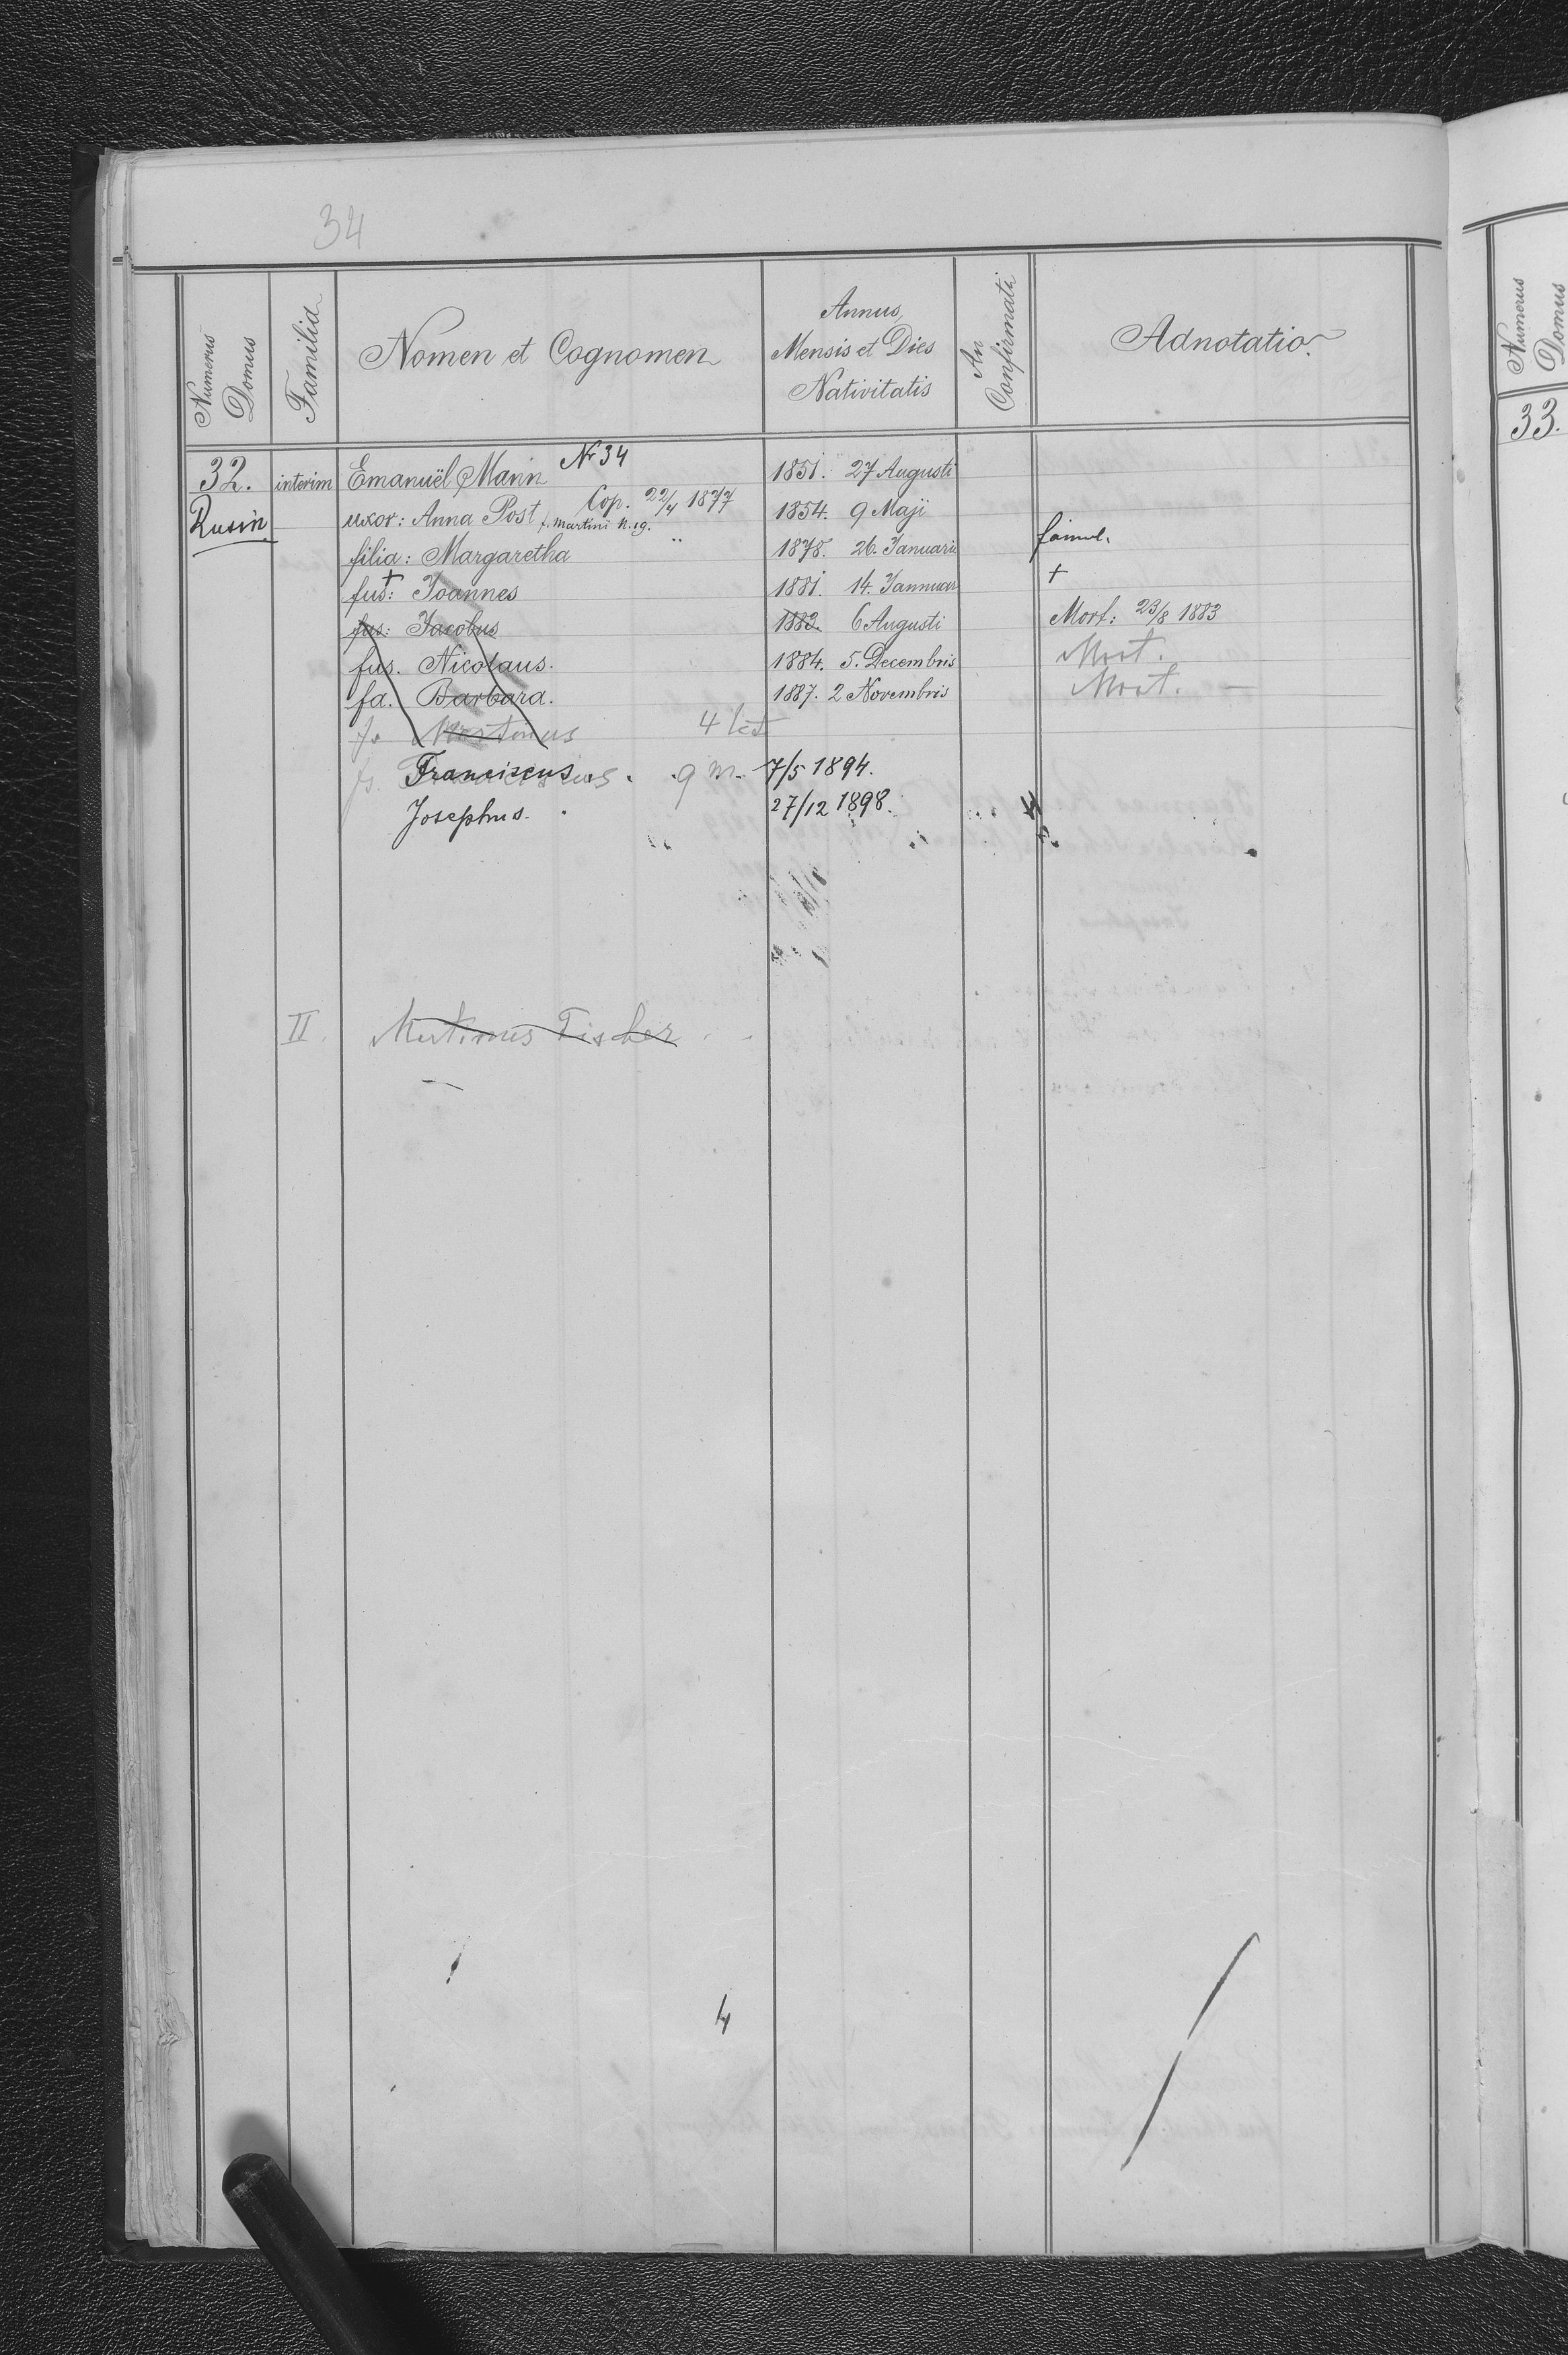 34
Numerus Domus Familia Nomen et Cognomen Annus, Mensis et Dies Nativitatis An Confirmati Adnotatio.
Numerus Domus
33.
Nr 34
32. interim Emanuël Mann 1851. 27 Augusti
Cop. 22/4 1877
Rusin uxor: Anna Post f. Martini N. 19. 1854. 9 Maji
filia: Margaretha " 1878. 26. Januarii famul.
fus: + Joannes 1881. 14. Jannuar +
fus: Jacobus 1883. 6 Augusti Mort: 23/8 1883
fus. Nicolaus. 1884. 5. Decembris Mort.
fa. Barbara. 1887. 2 Novembris Mort. —
fs Martinus 4 let
fs. Franciscus. 9 m. 7/5 1894.
Josephus. 27/12 1898.
II. Martinus Fischer
4